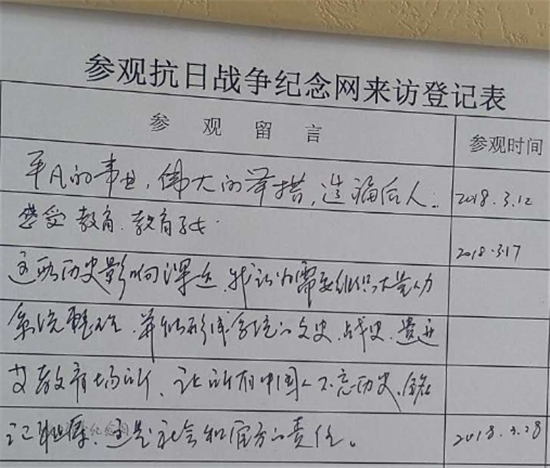 参观抗日战争纪念网来访登记表
参观留言 参观时间
平凡的事业,伟大的举措,造福后人. 2018.3.12
感受教育.教育子女. 2018.3.17
这段历史影响深远,我认为需要组织大量人力
系统整理,并能形成系统的文史、战史、遗
教育场所,让所有中国人不忘历史,铭
记耻辱,这是社会和官方的责任。 2018.3.28